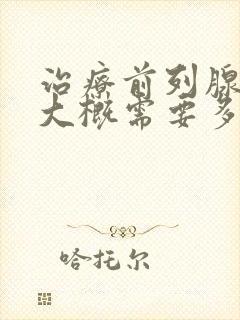 治療前列腺
大概需要多
哈托尔